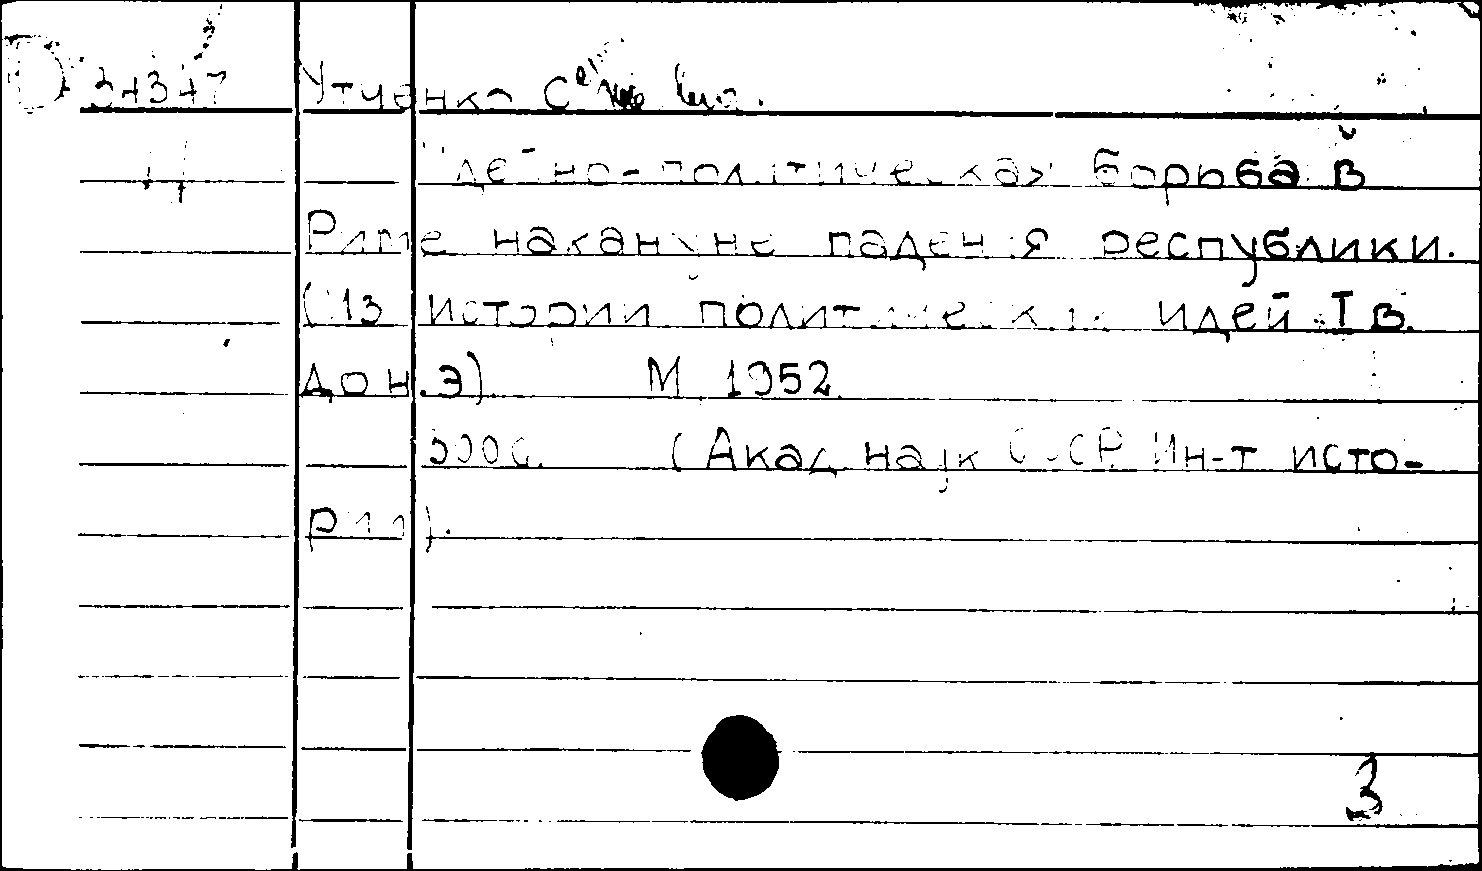 34347 Утченко
Идейно-политическая борьба в
Риме накануне падения республики.
(Из истории политических идей I в.
до н.э). М. 1952.
300с. (Акад наук СССР. Ин-т исто-
рии).
3